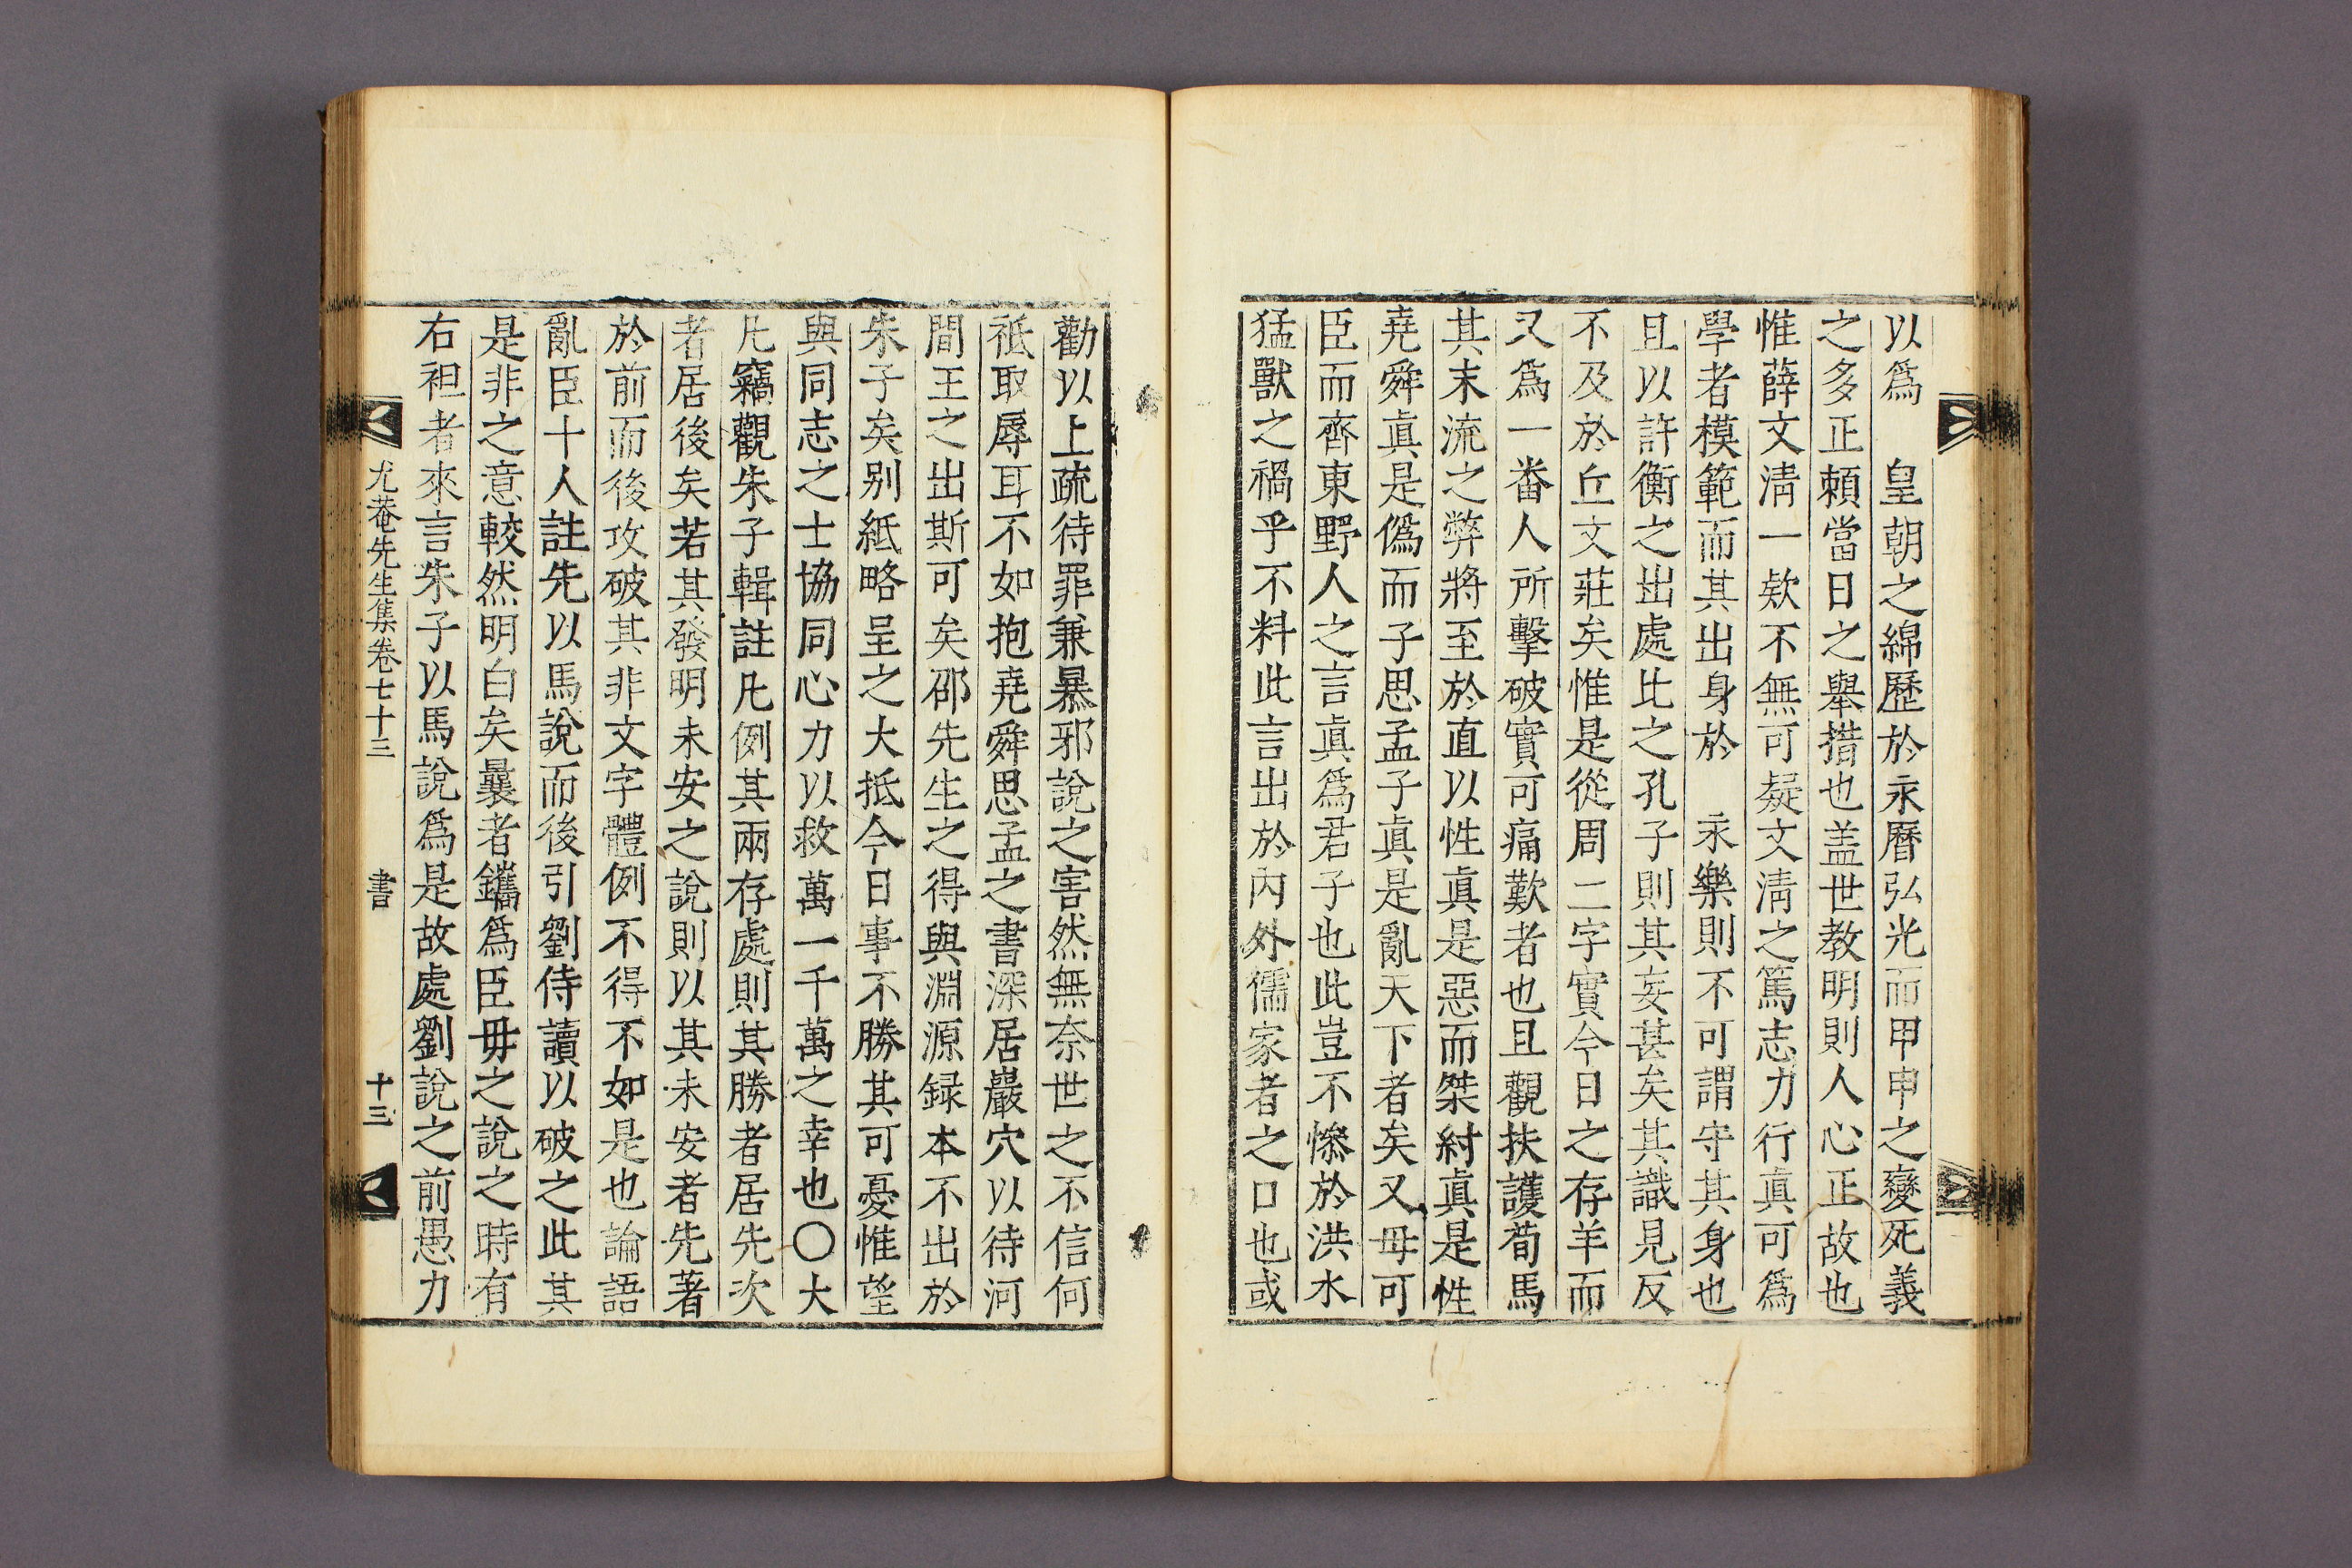 以爲　皇朝之綿歷於永曆弘光而甲申之變死義
之多正賴當日之舉措也盖世教明則人心正故也
惟薛文淸一欵不無可疑文淸之篤志力行眞可爲
學者模範而其出身於　永樂則不可謂守其身也
且以許衡之出處比之孔子則其妄甚矣其識見反
不及於丘文莊矣惟是從周二字實今日之存羊而
又爲一番人所擊破實可痛歎者也且觀扶護荀馬
其末流之弊將至於直以性眞是惡而桀紂眞是性
堯舜眞是僞而子思孟子眞是亂天下者矣又毋可
臣而齊東野人之言眞爲君子也此豈不慘於洪水
猛獸之禍乎不料此言出於內外儒家者之口也或
勸以上疏待罪兼暴邪說之害然無奈世之不信何
祗取辱耳不如抱堯舜思孟之書深居巖穴以待河
間王之出斯可矣邵先生之得與淵源録本不出於
朱子矣别紙略呈之大抵今日事不勝其可憂惟望
與同志之士協同心力以救萬一千萬之幸也〇大
凡竊觀朱子輯註凡例其兩存處則其勝者居先次
者居後矣若其發明未安之說則以其未安者先著
於前而後攻破其非文字體例不得不如是也論語
亂臣十人註先以馬說而後引劉侍讀以破之此其
是非之意較然明白矣曩者鑴爲臣毋之說之時有
右袒者來言朱子以馬說爲是故處劉說之前愚力
尤菴先生集卷七十三　書　十三